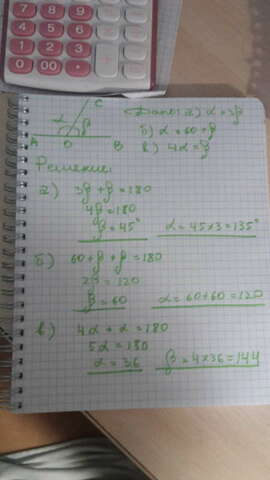 7 8 9
4 5 6
1 2 3
0 00 •
C
α β
A O B
Дано: а) α = 3β
б) α = 60 + β
в) 4α = β
Решение:
а) 3β + β = 180
4β = 180
β = 45° α = 45×3 = 135°
б) 60 + β + β = 180
2β = 120
β = 60 α = 60 + 60 = 120
в) 4α + α = 180
5α = 180
α = 36 β = 4×36 = 144